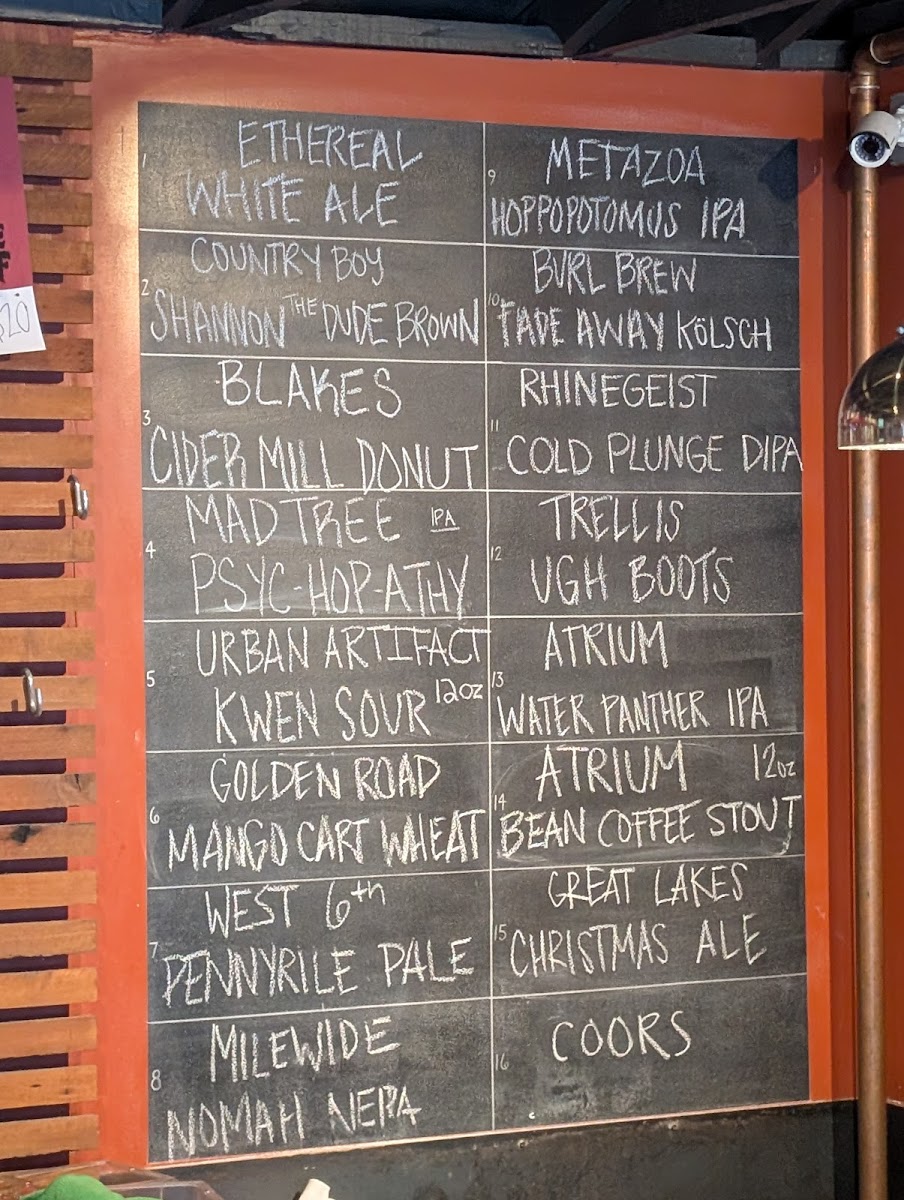 1
ETHEREAL
WHITE ALE
2
COUNTRY BOY
SHANNON THE DUDE BROWN
3
BLAKES
CIDER MILL DONUT
4
MADTREE IPA
PSYC-HOP-ATHY
5
URBAN ARTIFACT
KWEN SOUR 12oz
6
GOLDEN ROAD
MANGO CART WHEAT
7
WEST 6th
PENNYRILE PALE
8
MILEWIDE
NOMAH NEIPA
9
METAZOA
HOPPOPOTOMUS IPA
10
BURL BREW
FADE AWAY KÖLSCH
11
RHINEGEIST
COLD PLUNGE DIPA
12
TRELLIS
UGH BOOTS
13
ATRIUM
WATER PANTHER IPA
14
ATRIUM 12oz
BEAN COFFEE STOUT
15
GREAT LAKES
CHRISTMAS ALE
16
COORS